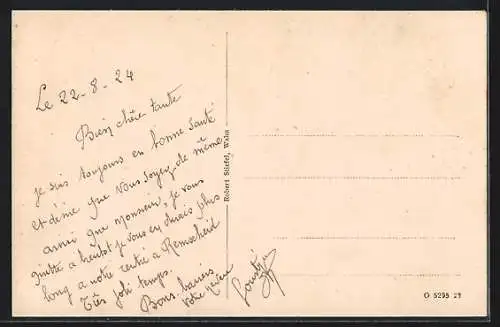 Le 22-8-24
Bien chère tante
je suis toujours en bonne santé
et désire que vous soyez de même
ainsi que Monsieur, je vous
quitte à bientot je vous en dirais plus
long a notre rentré a Remscheid
Très joli temps.
Bons baisers
votre neveu
Robert Stiefel, Wahn
O 5295 23